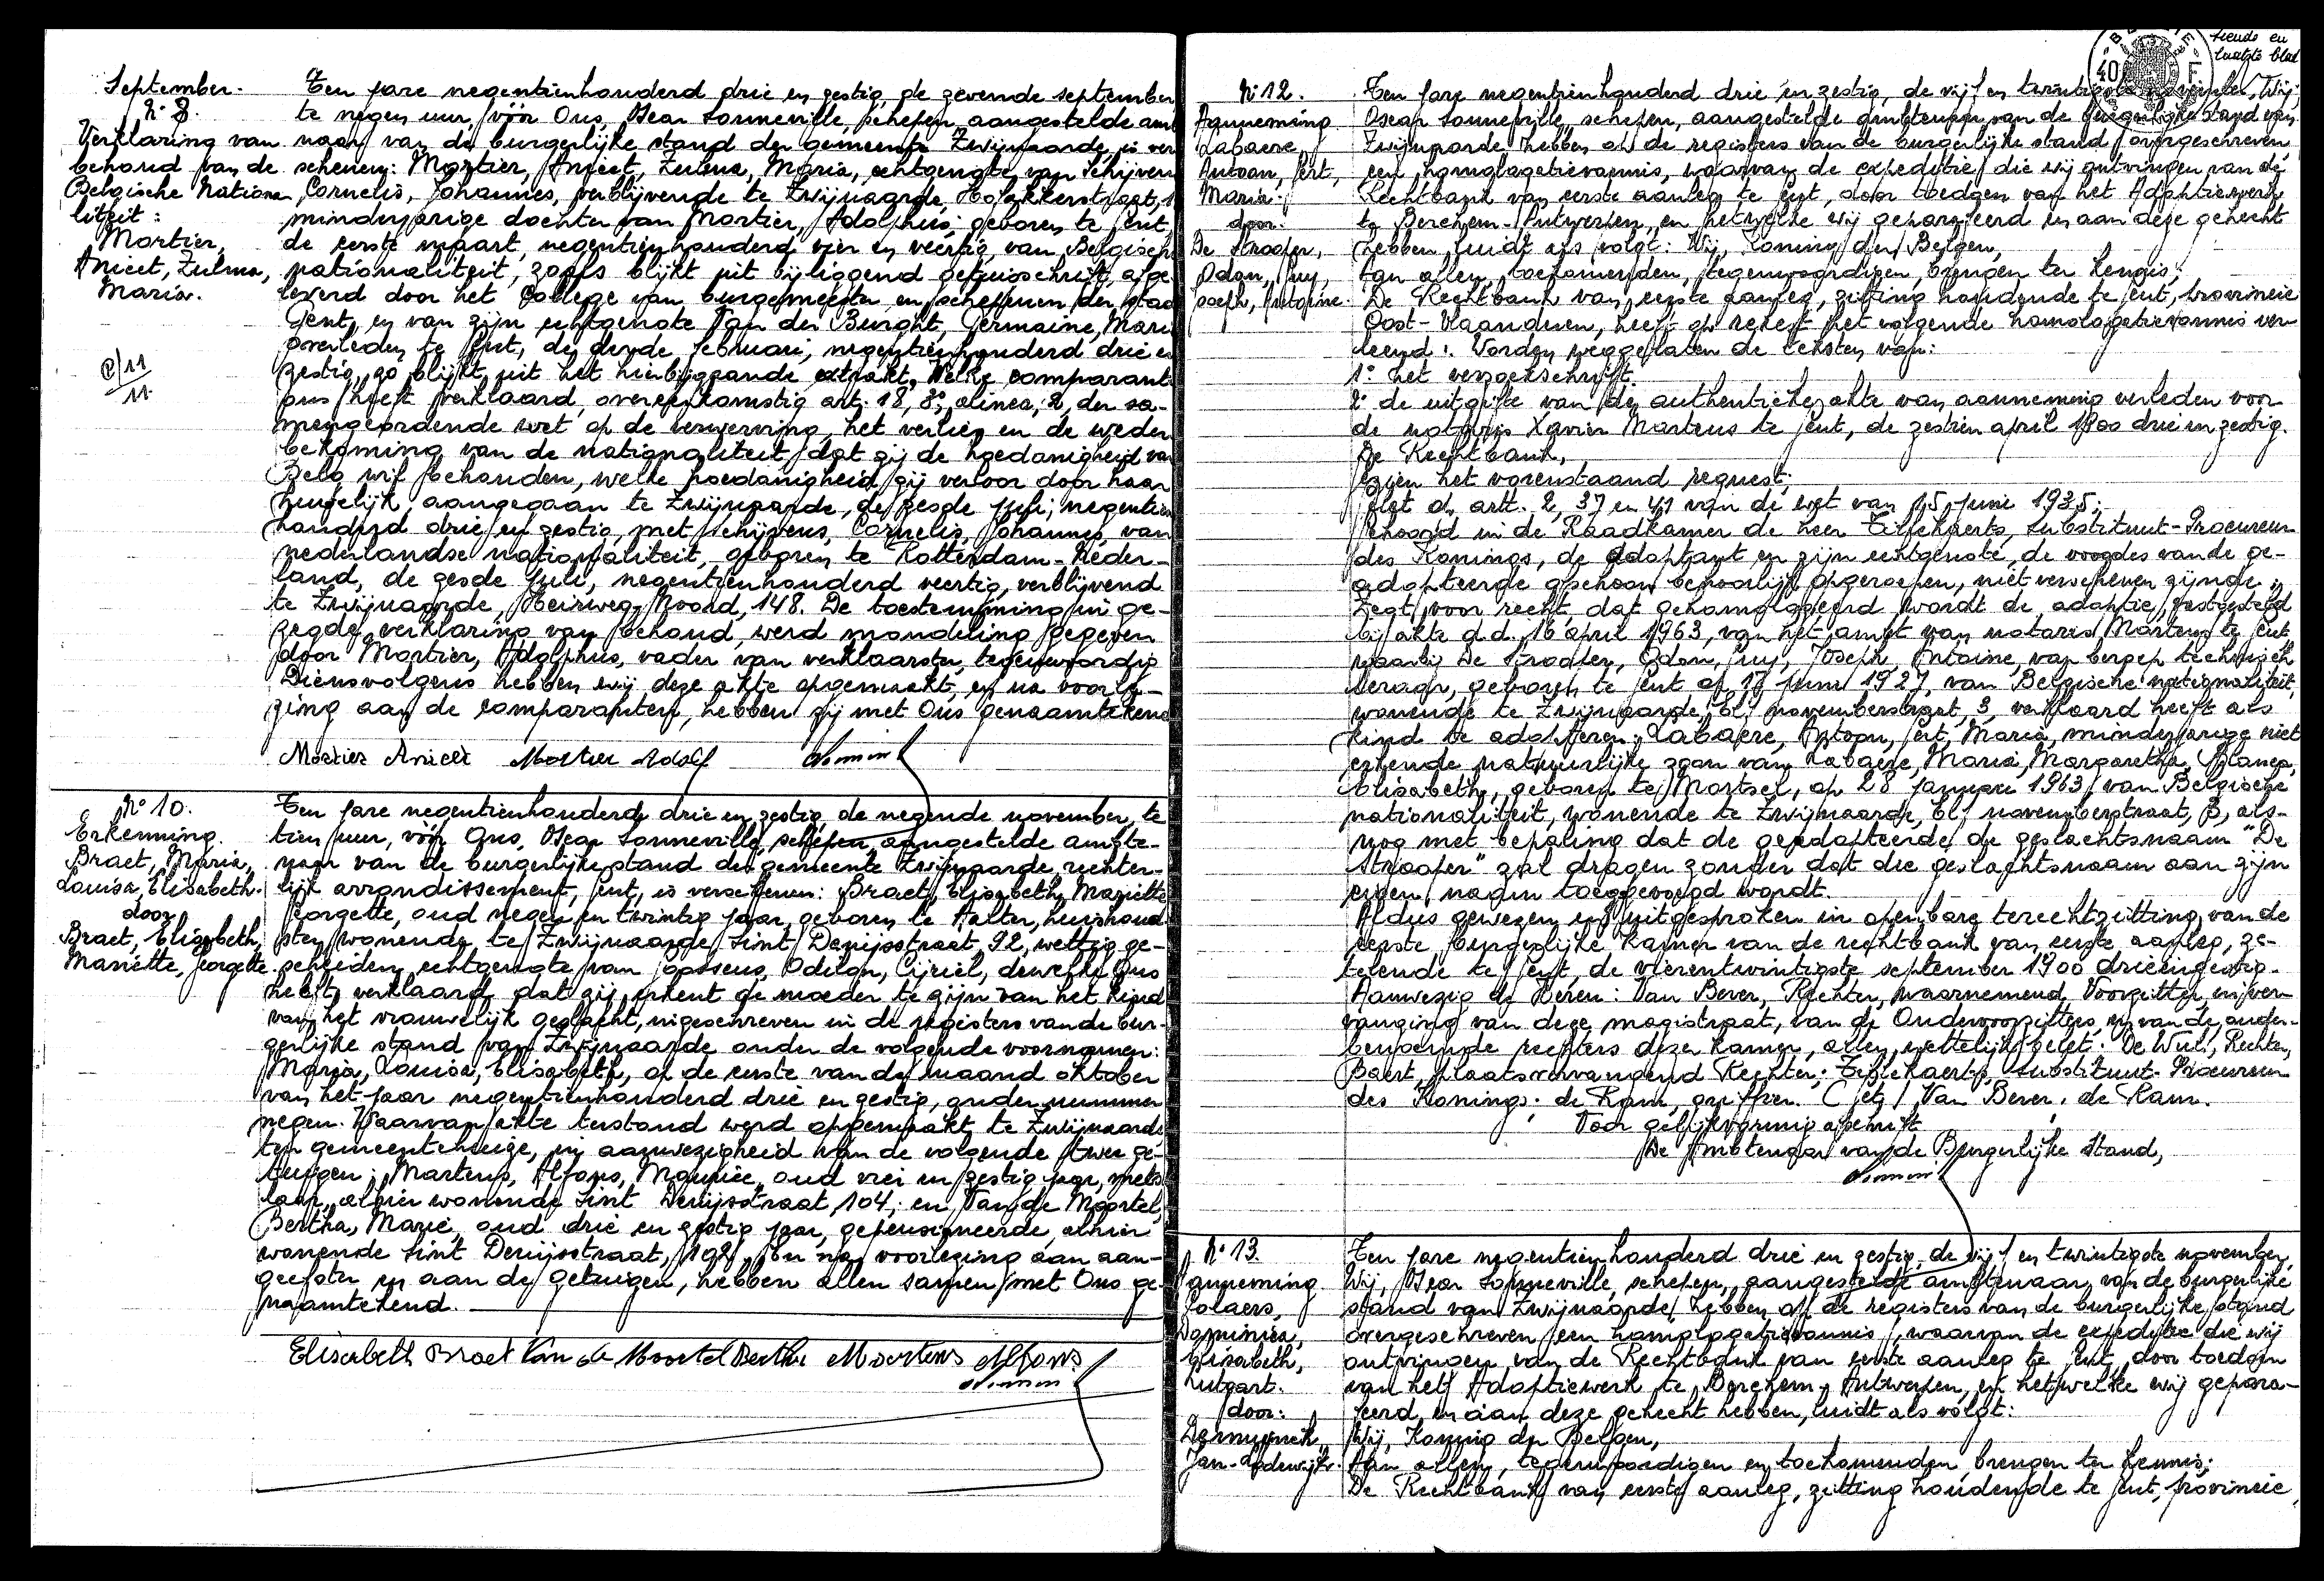 September.
N° 8.
Verklaring van
behoud van de
Belgische Nationa
liteit:
Mortier,
Anicet, Zulma,
Maria.
Ten jare negentienhonderd drie en zestig, de zevende september
te negen uur, vóór Ons, Oscar Sonneville, schepen, aangestelde amb
naar van de burgerlijke stand der gemeente Zwijnaarde, is ver
schenen: Mortier, Anicet, Zulma, Maria, echtgenote van Schijven
Cornelis, Johannes, verblijvende te Zwijnaarde,
minderjarige dochter van Mortier, Adolphus, geboren te Gent,
de eerste maart, negentienhonderd vier en veertig, van Belgische
nationaliteit, zoals blijkt uit bijliggend getuigschrift, afge
leverd door het College van burgemeester en schepenen der stad
Gent, en van zijn echtgenote Van der Burght, Germaine, Mari
overleden te Gent, de derde februari, negentienhonderd drie en
zestig, zo blijkt uit het hierbijgaande extrakt. Welke comparant
ons heeft verklaard, overeenkomstig art. 18, 3°, alinea, 2, der sa-
mengeordende wet op de verwerving, het verlies en de weder
bekoming van de nationaliteit, dat zij de hoedanigheid van
Belg wil behouden, welke hoedanigheid zij verloor door haar
huwelijk, aangegaan te Zwijnaarde, de zesde juli, negentien
honderd drie en zestig, met Schijvens, Cornelis, Johannes, van
nederlandse nationaliteit, geboren te Rotterdam-Neder-
land, de zesde juli, negentienhonderd veertig, verblijvend
te Zwijnaarde, Heirweg Noord, 148. De toestemming in ge-
zegde verklaring van behoud werd mondeling gegeven
door Mortier, Adolphus, vader van verklaarster, tegenwoordig
Diensvolgens hebben wij deze akte opgemaakt, en na voorle-
zing aan de comparanten, hebben zij met Ons genaamtekend
Mortier Anicet Mortier Adolf
N° 10.
Erkenning.
Braet, Maria,
Louisa, Elisabeth.
door
Braet, Elisabeth,
Mariette, Georgette.
Ten jare negentienhonderd drie en zestig, de negende november, te
tien uur, vóór Ons, Oscar Sonneville, schepen, aangestelde ambte-
naar van de burgerlijke stand der gemeente Zwijnaarde, rechter-
lijk arrondissement, Gent, is verschenen: Braet, Elisabeth, Mariette
Georgette, oud negen en twintig jaar, geboren te Aalter, huishoud-
ster, wonende te Zwijnaarde, Sint Denijsstraat, 92, wettig ge-
scheiden echtgenote van Goossens, Odilon, Cijriel, dewelke Ons
heeft verklaard dat zij erkent de moeder te zijn van het kind
van het vrouwelijk geslacht, ingeschreven in de registers van de bur-
gerlijke stand van Zwijnaarde onder de volgende voornamen:
Maria, Louisa, Elisabeth, op de eerste van de maand oktober
van het jaar negentienhonderd drie en zestig, onder nummer
negen. Waarvan akte terstond werd opgemaakt te Zwijnaarde
ten gemeentehuize, in aanwezigheid van de volgende twee ge-
tuigen; Martens, Alfons, Maurice, oud en zestig jaar,
alhier wonende Sint Denijsstraat, 104; en Van de Moortel,
Bertha, Marie, oud drie en zestig jaar, gepensioneerde, alhier
wonende Sint Denijsstraat, 192, en na voorlezing aan aan-
geefster en aan de getuigen, hebben allen samen met Ons ge-
naamtekend.
Elisabeth Braet Van de Moortel Bertha Martens Alfons
40 F
laatste blad
N° 12.
Aanneming
Labaere,
Antoon, Gert,
Maria.
door.
De Strooper,
Odon, Guy,
Joseph, Antoine.
Ten jare negentienhonderd drie en zestig, de vijf en twintigste november, Wij,
Oscar Sonneville, schepen, aangestelde ambtenaar van de burgerlijke stand van
Zwijnaarde hebben op de registers van de burgerlijke stand overgeschreven
een homologatievonnis, waarvan de expeditie, die wij ontvingen van de
Rechtbank van eerste aanleg te Gent, door toedoen van het Adoptiewerk
te Berchem-Antwerpen, en hetwelke wij geparafeerd en aan deze gehecht
hebben, luidt als volgt: Wij, Koning der Belgen,
Aan allen, toekomenden, tegenwoordigen, brengen ter kennis;
De Rechtbank van eerste aanleg, zitting houdende te Gent, provincie
Oost-Vlaanderen, heeft op rekest het volgende homologatievonnis ver-
leend: Worden weggelaten de teksten van:
1° het verzoekschrift.
2° de uitgifte van de authentieke akte van aanneming verleden voor
de notaris Xavier Martens te Gent, de zestien april 1900 drie en zestig.
De Rechtbank,
Gezien het vorenstaand request;
Gelet op artt. 2, 37 en 41 van de wet van 15 juni 1935;
Gehoord in de Raadkamer de heer Substituut-Procureur
des Konings, de adoptant en zijn echtgenote, de voogdes van de ge-
adopteerde ofschoon behoorlijk opgeroepen, niet verschenen zijnde;
Zegt voor recht, dat gehomologeerd wordt de adoptie, vastgesteld
bij akte d.d. 16 april 1963, van het ambt van notaris Martens te Gent
waarbij De Strooper, Odon, Guy, Joseph, Antoine, van beroep technisch
leraar, geboren te Gent op 17 juni 1927, van Belgische nationaliteit,
wonende te Zwijnaarde, 11 novemberstraat, 3, verklaard heeft als
kind te adopteren: Labaere, Antoon, Gert, Maria, minderjarige niet
erkende natuurlijke zoon van Labaere, Maria, Margaretha, Blanca,
Elisabeth, geboren te Mortsel, op 28 januari 1963, van Belgische
nationaliteit, wonende te Zwijnaarde, 11 novemberstraat, 3, als-
nog met bepaling dat de geadopteerde de geslachtsnaam "De
Strooper" zal dragen zonder dat die geslachtsnaam aan zijn
eigen naam toegevoegd wordt.
Aldus gewezen en uitgesproken in openbare terechtzitting van de
eerste burgerlijke kamer van de rechtbank van eerste aanleg, ze-
telende te Gent, de vierentwintigste september 1900 drieënzestig.
Aanwezig de Heren: Van Bever, Rechter, waarnemend Voorzitter, in ver-
vanging van deze magistraat, van de Ondervoorzitters, en van de ander-
benoemde rechters dezer kamer, allen wettelijk belet: De Wul, Rechter,
Baert, plaatsvervangend Rechter; Substituut-Procureur
des Konings; de Ram, griffier. (get) Van Bever; de Ram.
Voor gelijkvormig afschrift
De Ambtenaar van de Burgerlijke Stand,
N° 13.
Aanneming
Colaers,
Dominica,
Elisabeth,
Lutgart.
door:
Dermynck
Jan-Lodewijk.
Ten jare negentienhonderd drie en zestig, de vijf en twintigste november,
Wij, Oscar Sonneville, schepen, aangestelde ambtenaar van de burgerlijke
stand van Zwijnaarde, hebben op de registers van de burgerlijke stand
overgeschreven een homologatievonnis, waarvan de expeditie die wij
ontvingen van de Rechtbank van eerste aanleg te Gent, door toedoen
van het Adoptiewerk te Berchem-Antwerpen, en hetwelke wij gepara-
feerd en aan deze gehecht hebben, luidt als volgt:
Wij, Koning der Belgen,
Aan allen, tegenwoordigen en toekomenden, brengen ter kennis;
De Rechtbank van eerste aanleg, zitting houdende te Gent, provincie